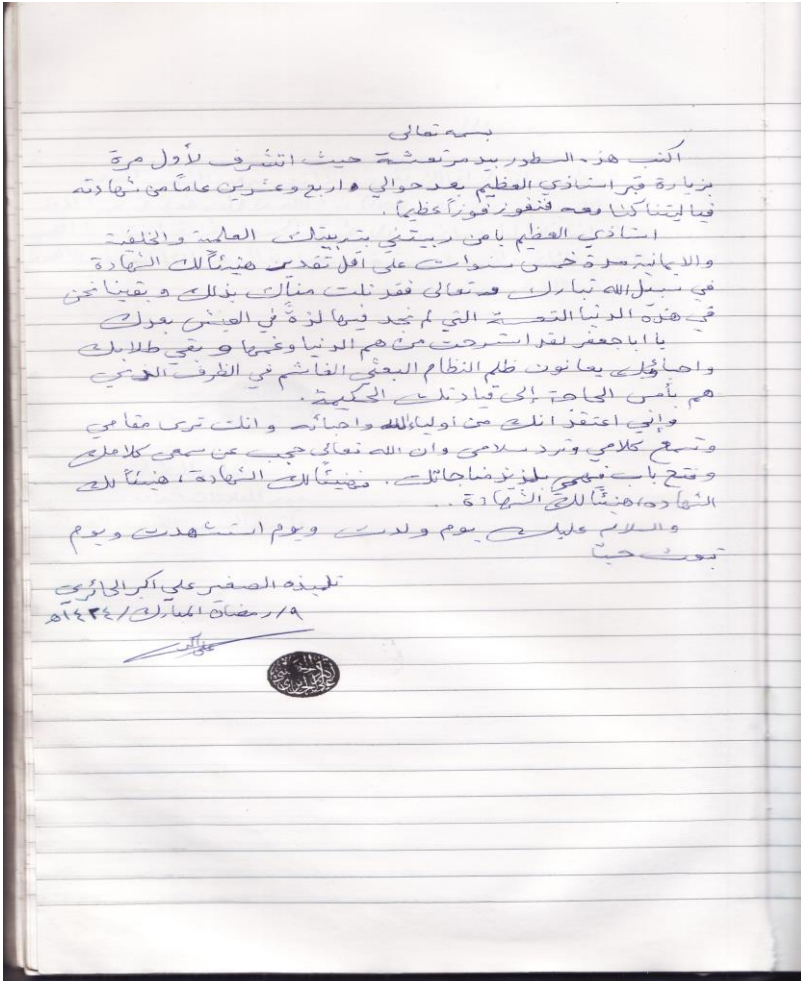 بسمه تعالى
اكتب هذه السطور بيد مرتعشة حيث اتشرف لأول مرة
بزيارة قبر استاذي العظيم بعد حوالي اربع وعشرين عاماً من شهادته
فيا ليتنا كنا معه فنفوز فوزاً عظيماً.
استاذي العظيم يا من ربيتني بتربيتك العلمية والخلقية
والايمانية مدة خمس سنوات على اقل تقدير هنيئاً لك الشهادة
في سبيل الله تبارك وتعالى فقد نلت مناك بذلك وبقينا نحن
في هذه الدنيا التعسة التي لم نجد فيها لذةً في العيش بعدك
يا ابا جعفر لقد استرحت من هم الدنيا وغمها وبقي طلابك
واحباؤك يعانون ظلم النظام البعثي الغاشم في الظرف الذي
هم بأمس الحاجة إلى قيادتك الحكيمة.
وإني اعتقد انك من أولياء الله واحبائه وانت ترى مقامي
وتسمع كلامي وترد سلامي وان الله تعالى حجب عن سمعي كلامك
وفتح باب فهمي بلذيذ مناجاتك. فهنيئاً لك الشهادة، هنيئاً لك
الشهادة، هنيئاً لك الشهادة...
والسلام عليك يوم ولدت ويوم استشهدت ويوم
تبعث حيّاً
تلميذه الصغير علي اكبر الحائري
٩/رمضان المبارك/١٤٢٤ه
علي اكبر